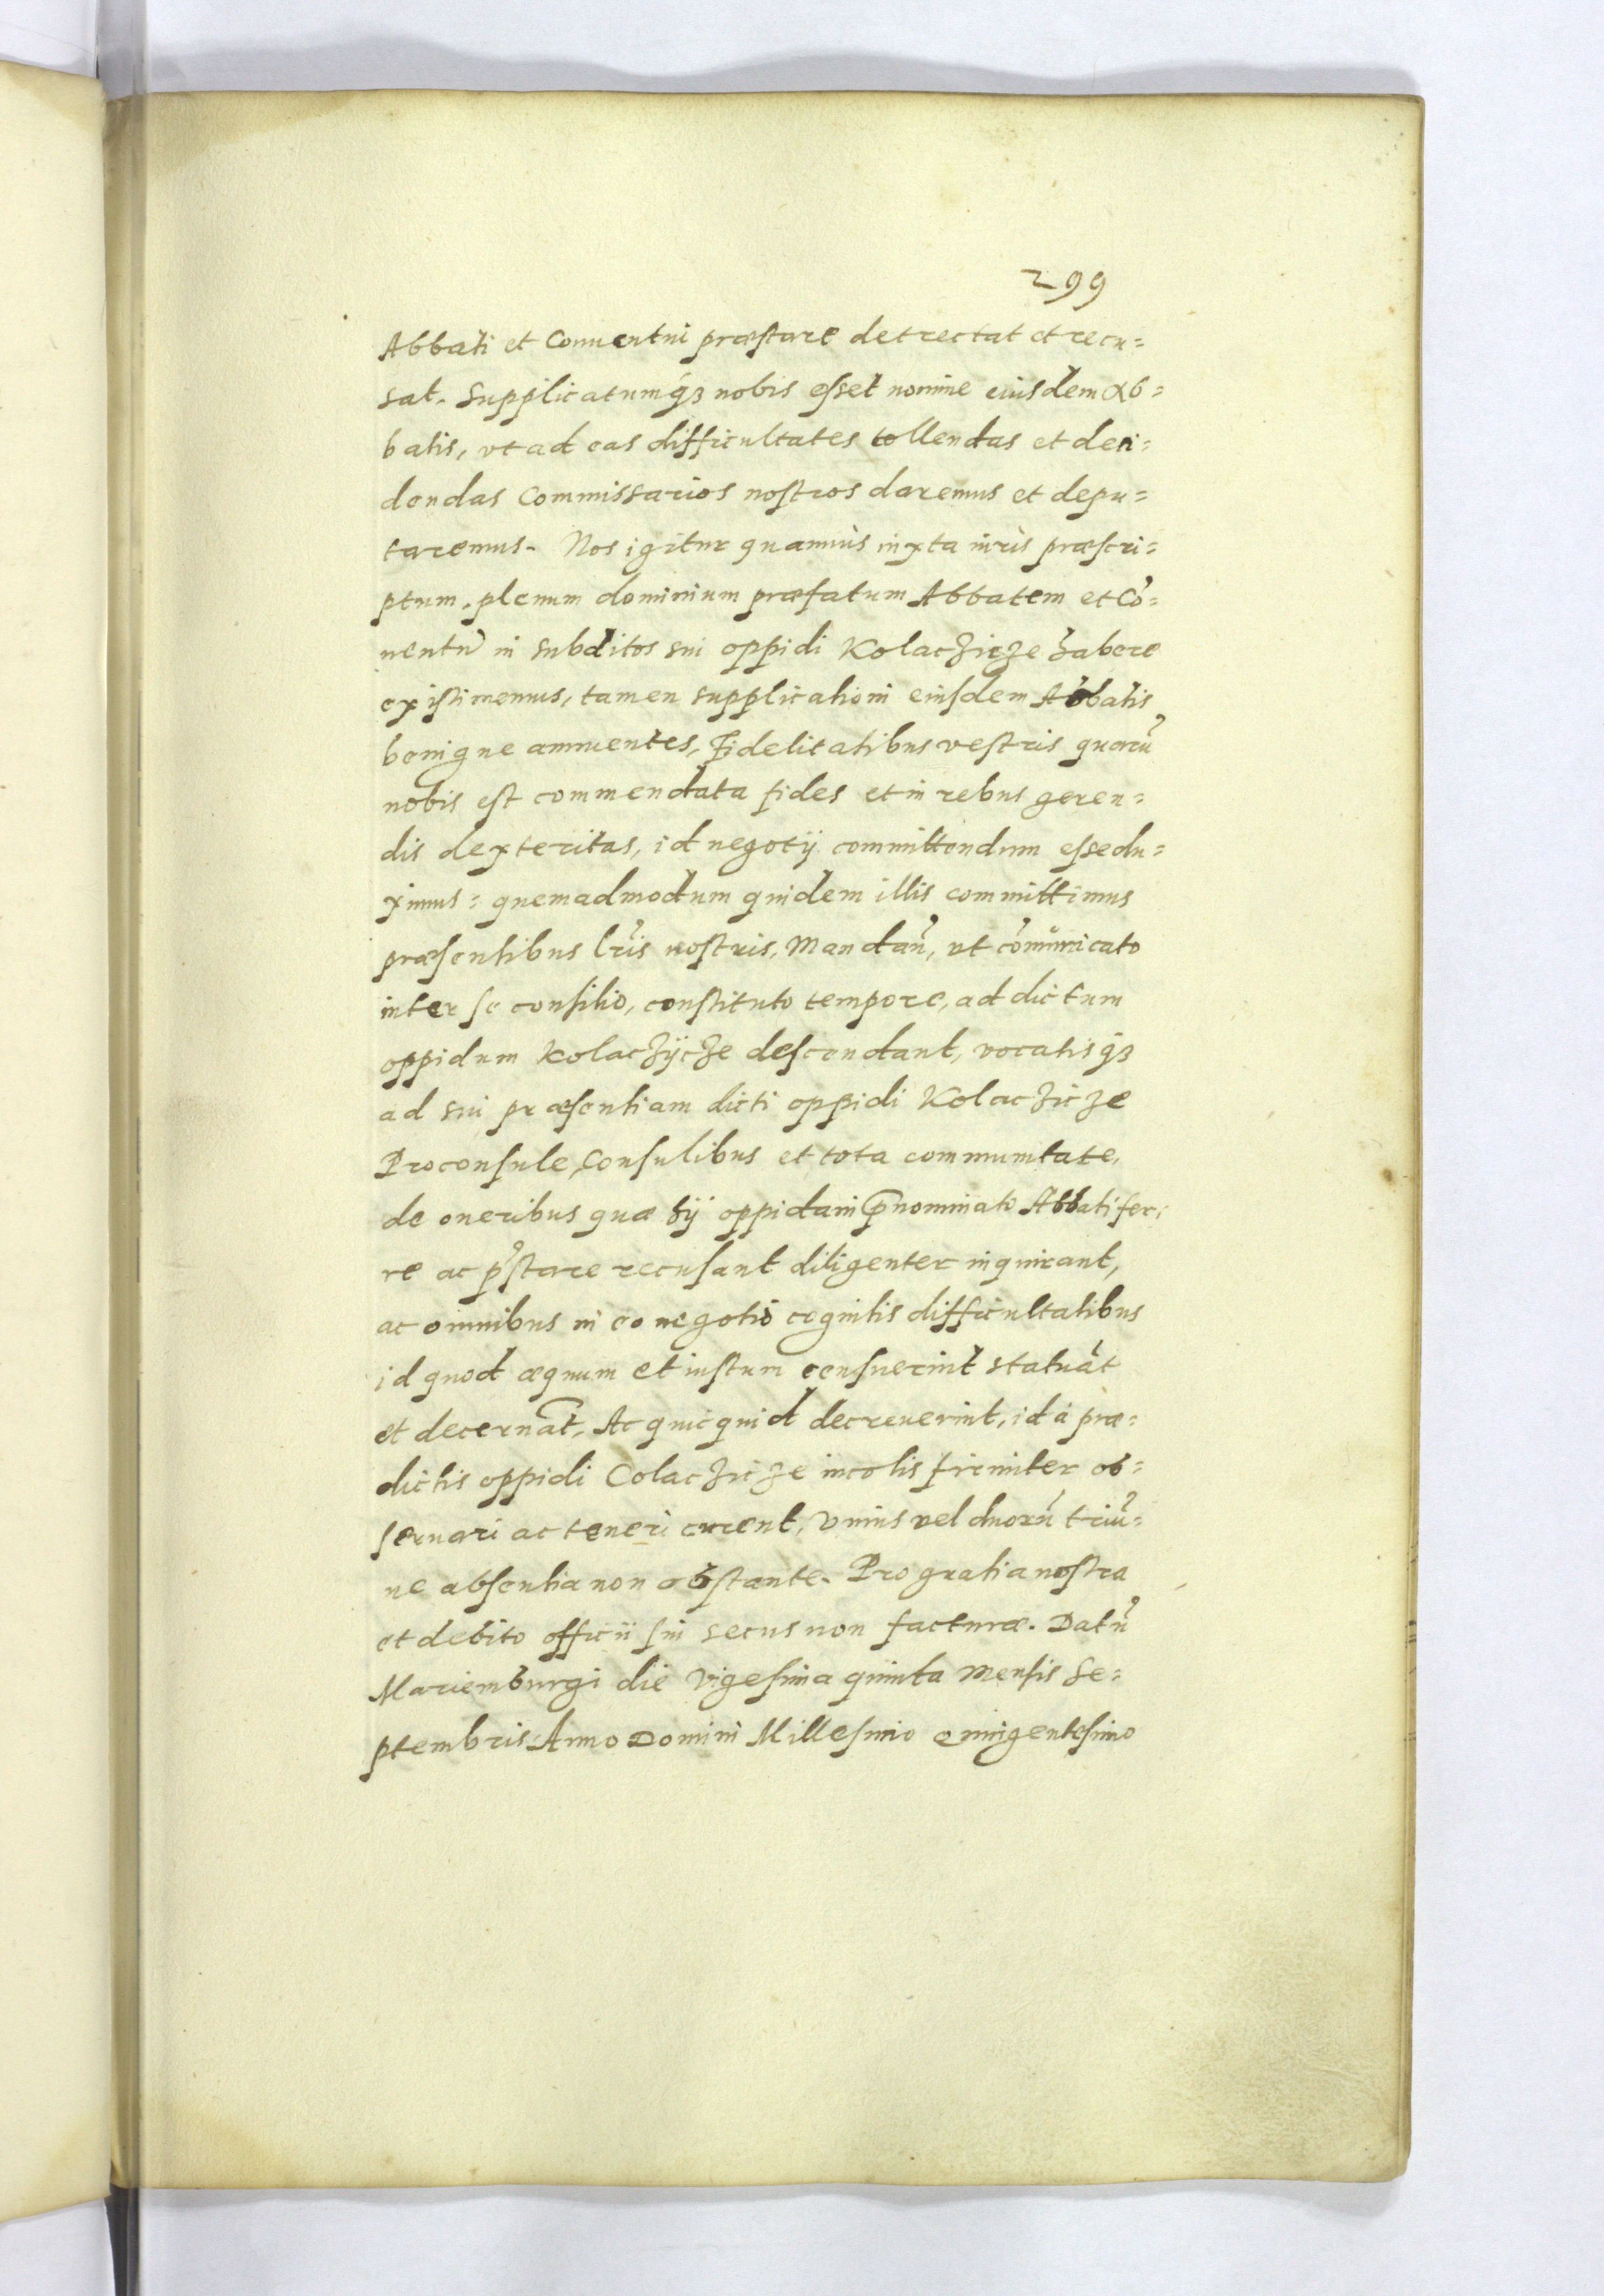 299
Abbati et Conuentui præstare detrectat et recu=
sat. Supplicatumq́ꝫ nobis esset nomine eiusdem Ab=
batis, vt ad eas difficultates tollendas et deci=
dendas Commissarios nostros daremus et depu=
taremus. Nos igitur quamuis iuxta iuris præscri=
ptum, plenum dominium præfatum Abbatem et Cō=
uentū in subditos sui oppidi Kolaczicze habere
existimemus, tamen supplicationi eiusdem Abbatis
benigne annuentes, Fidelitatibus vestris quarū
nobis est commendata fides et in rebus geren=
dis dexteritas, id negotij committendum esse du=
ximus: quemadmodum quidem illis committimus
præsentibus lr̄is nostris, Mandan̄, vt cōmunicato
inter se consilio, constituto tempore, ad dictum
oppidum Kolaczÿcze descendant, vocatisq́ꝫ
ad sui præsentiam dicti oppidi Kolaczicze
Proconsule, Consulibus et tota communitate,
de oneribus quæ hij oppidani p̄nominato Abbati fer=
re ac p̄stare recusant diligenter inquirant,
ac omnibus in eo negotio cognitis difficultatibus
id quod æquum et iustum censuerint statuāt
et decernāt, Ac quicquid decreuerint, id à præ=
dictis oppidi Colaczicze incolis firmiter ob=
seruari ac teneri curent, Vnius vel duorū triū=
ne absentia non obstante. Pro gratia nostra
et debito officii sui secus non facturæ. Datū
Mariemburgi die Vigesima quinta Mensis Se=
ptembris Anno Domini Millesimo Quingentesimo